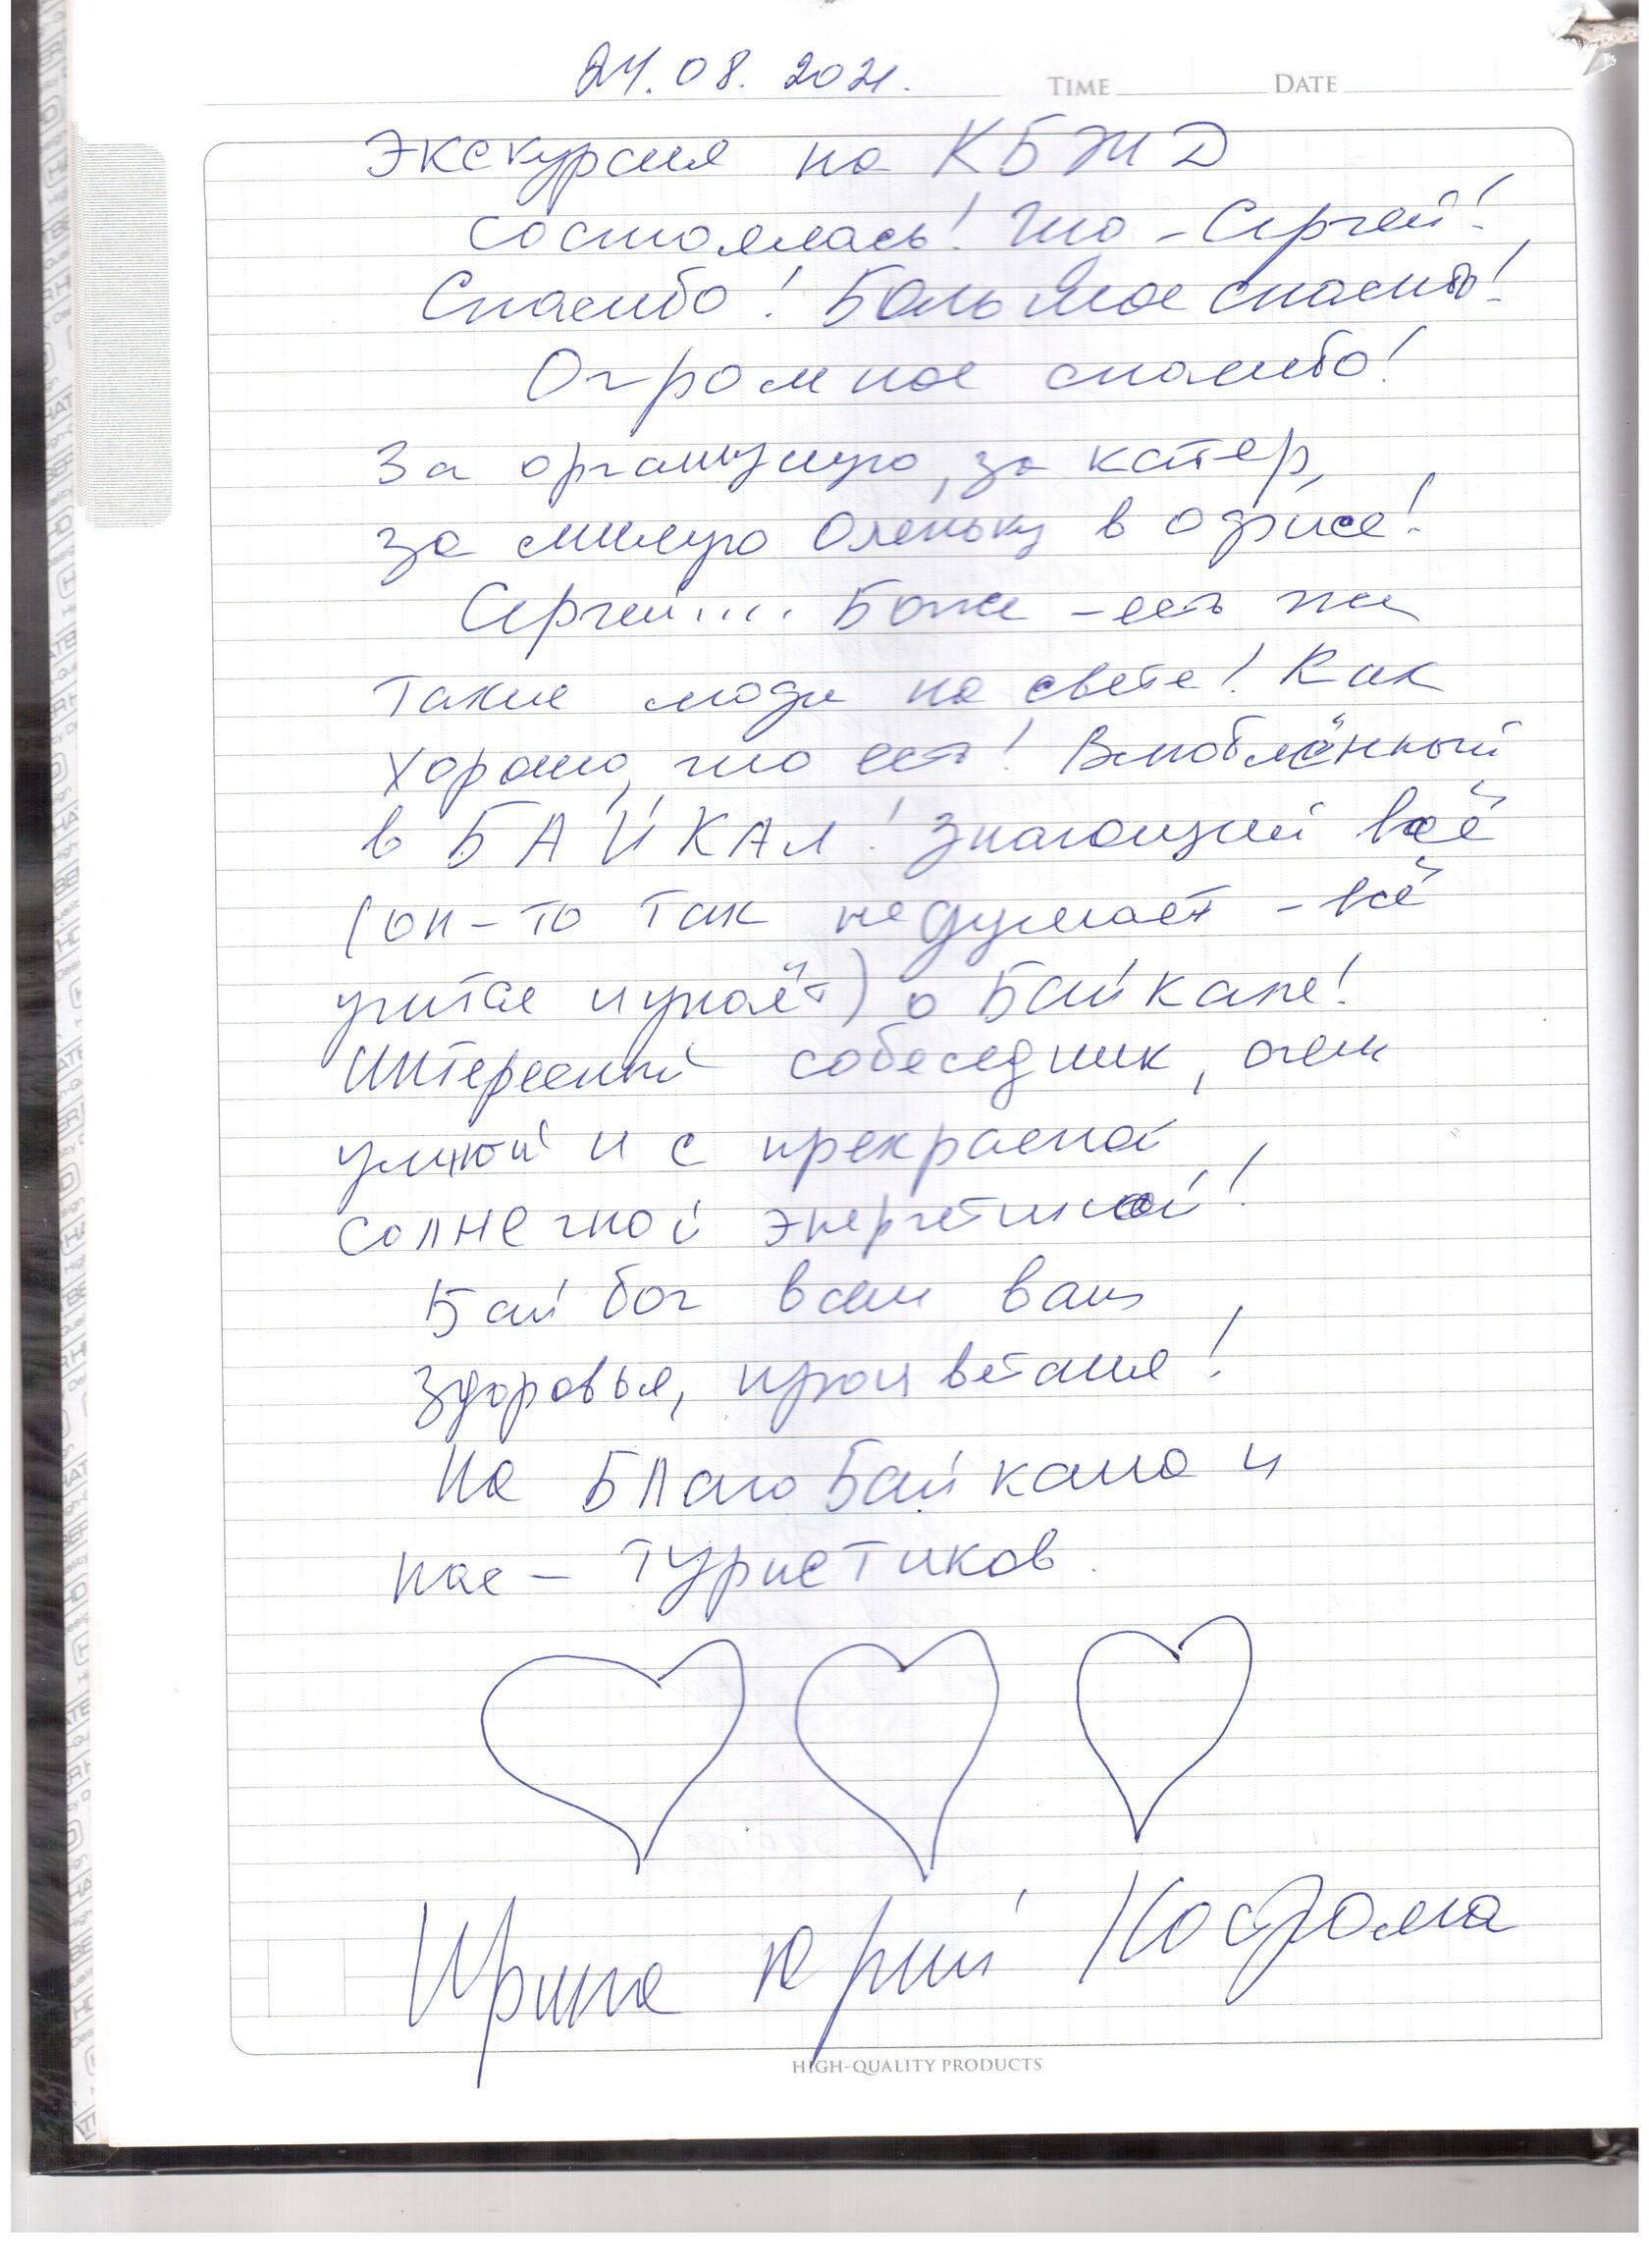 24.08.2021.
TIME DATE
Экскурсия на КБЖД
состоялась! Гид - Сергей!
Спасибо! Большое спасибо!
Огромное спасибо!
За организацию, за катер,
за милую Оленьку в офисе!
Сергей.... Боже - есть же
такие люди на свете! Как
хорошо, что есть! Влюблённый
в БАЙКАЛ! Знающий всё
(он-то так не думает - всё
учится и учится) о Байкале!
Интересный собеседник, очень
умный и с прекрасной
солнечной энергетикой!
Бай бог всем вам
здоровья, процветания!
На Благо Байкала и
нас - туристиков.
Ирина Юрий Кострома
HIGH-QUALITY PRODUCTS